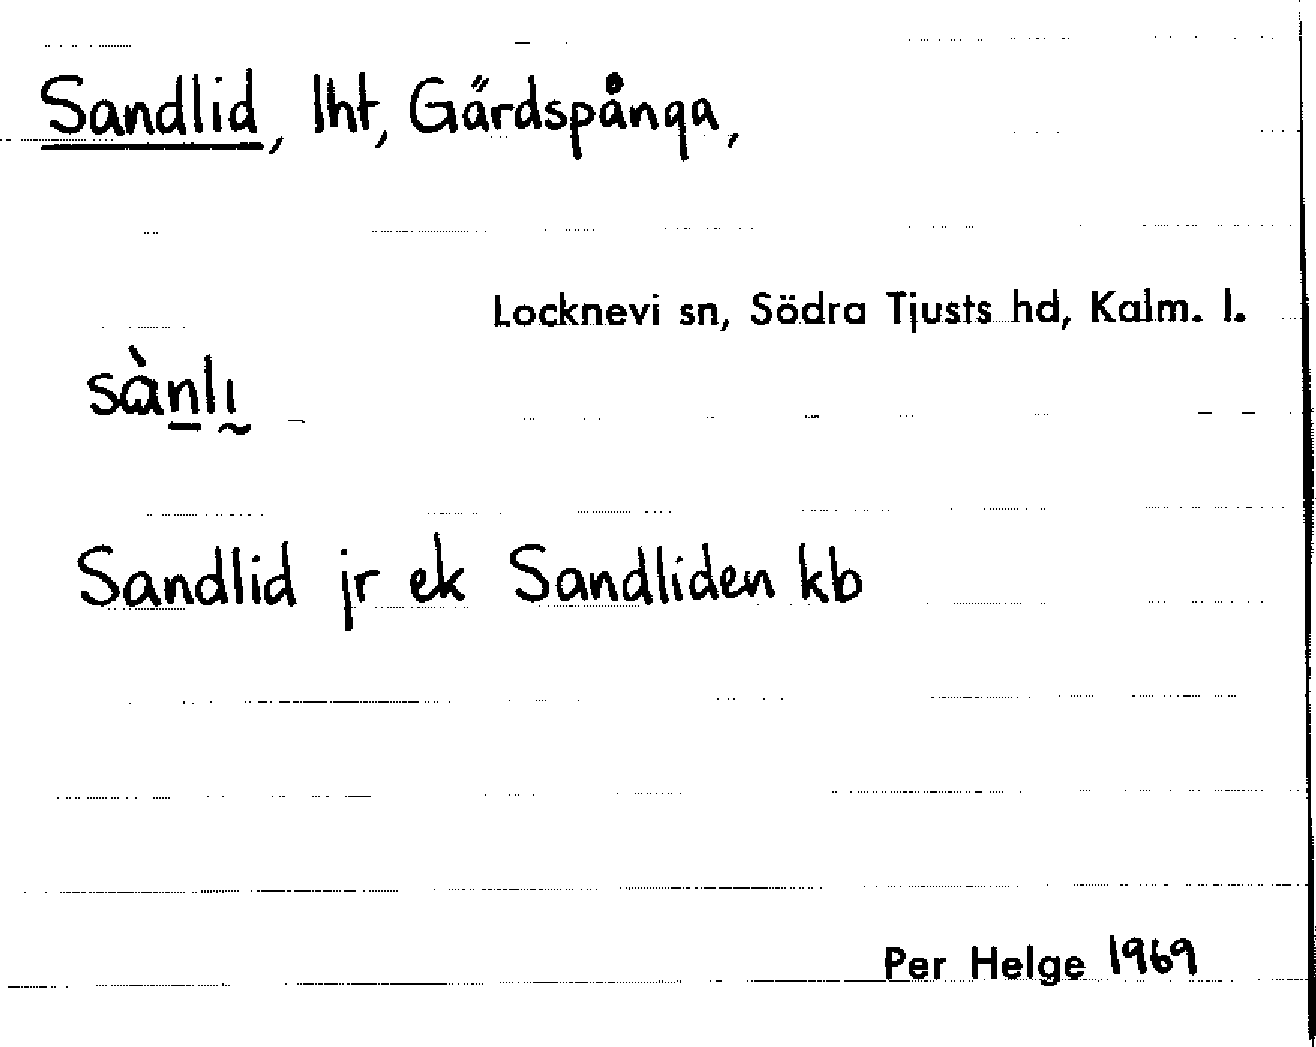 Sandlid, lht, Gärdspånga,
Locknevi sn, Södra Tjusts hd, Kalm. l.
sànlı
Sandlid jr ek Sandliden kb
Per Helge 1969